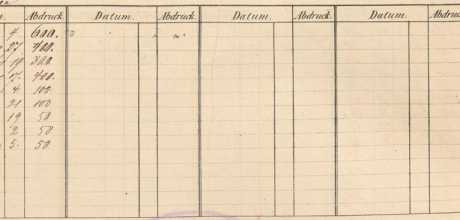 Abdruck. Datum. Abdruck. Datum. Abdruck. Datum. Abdruck
4 600.
27 400.
19 300.
17 400.
4 100
21 100
19 50
2 50
5. 50.